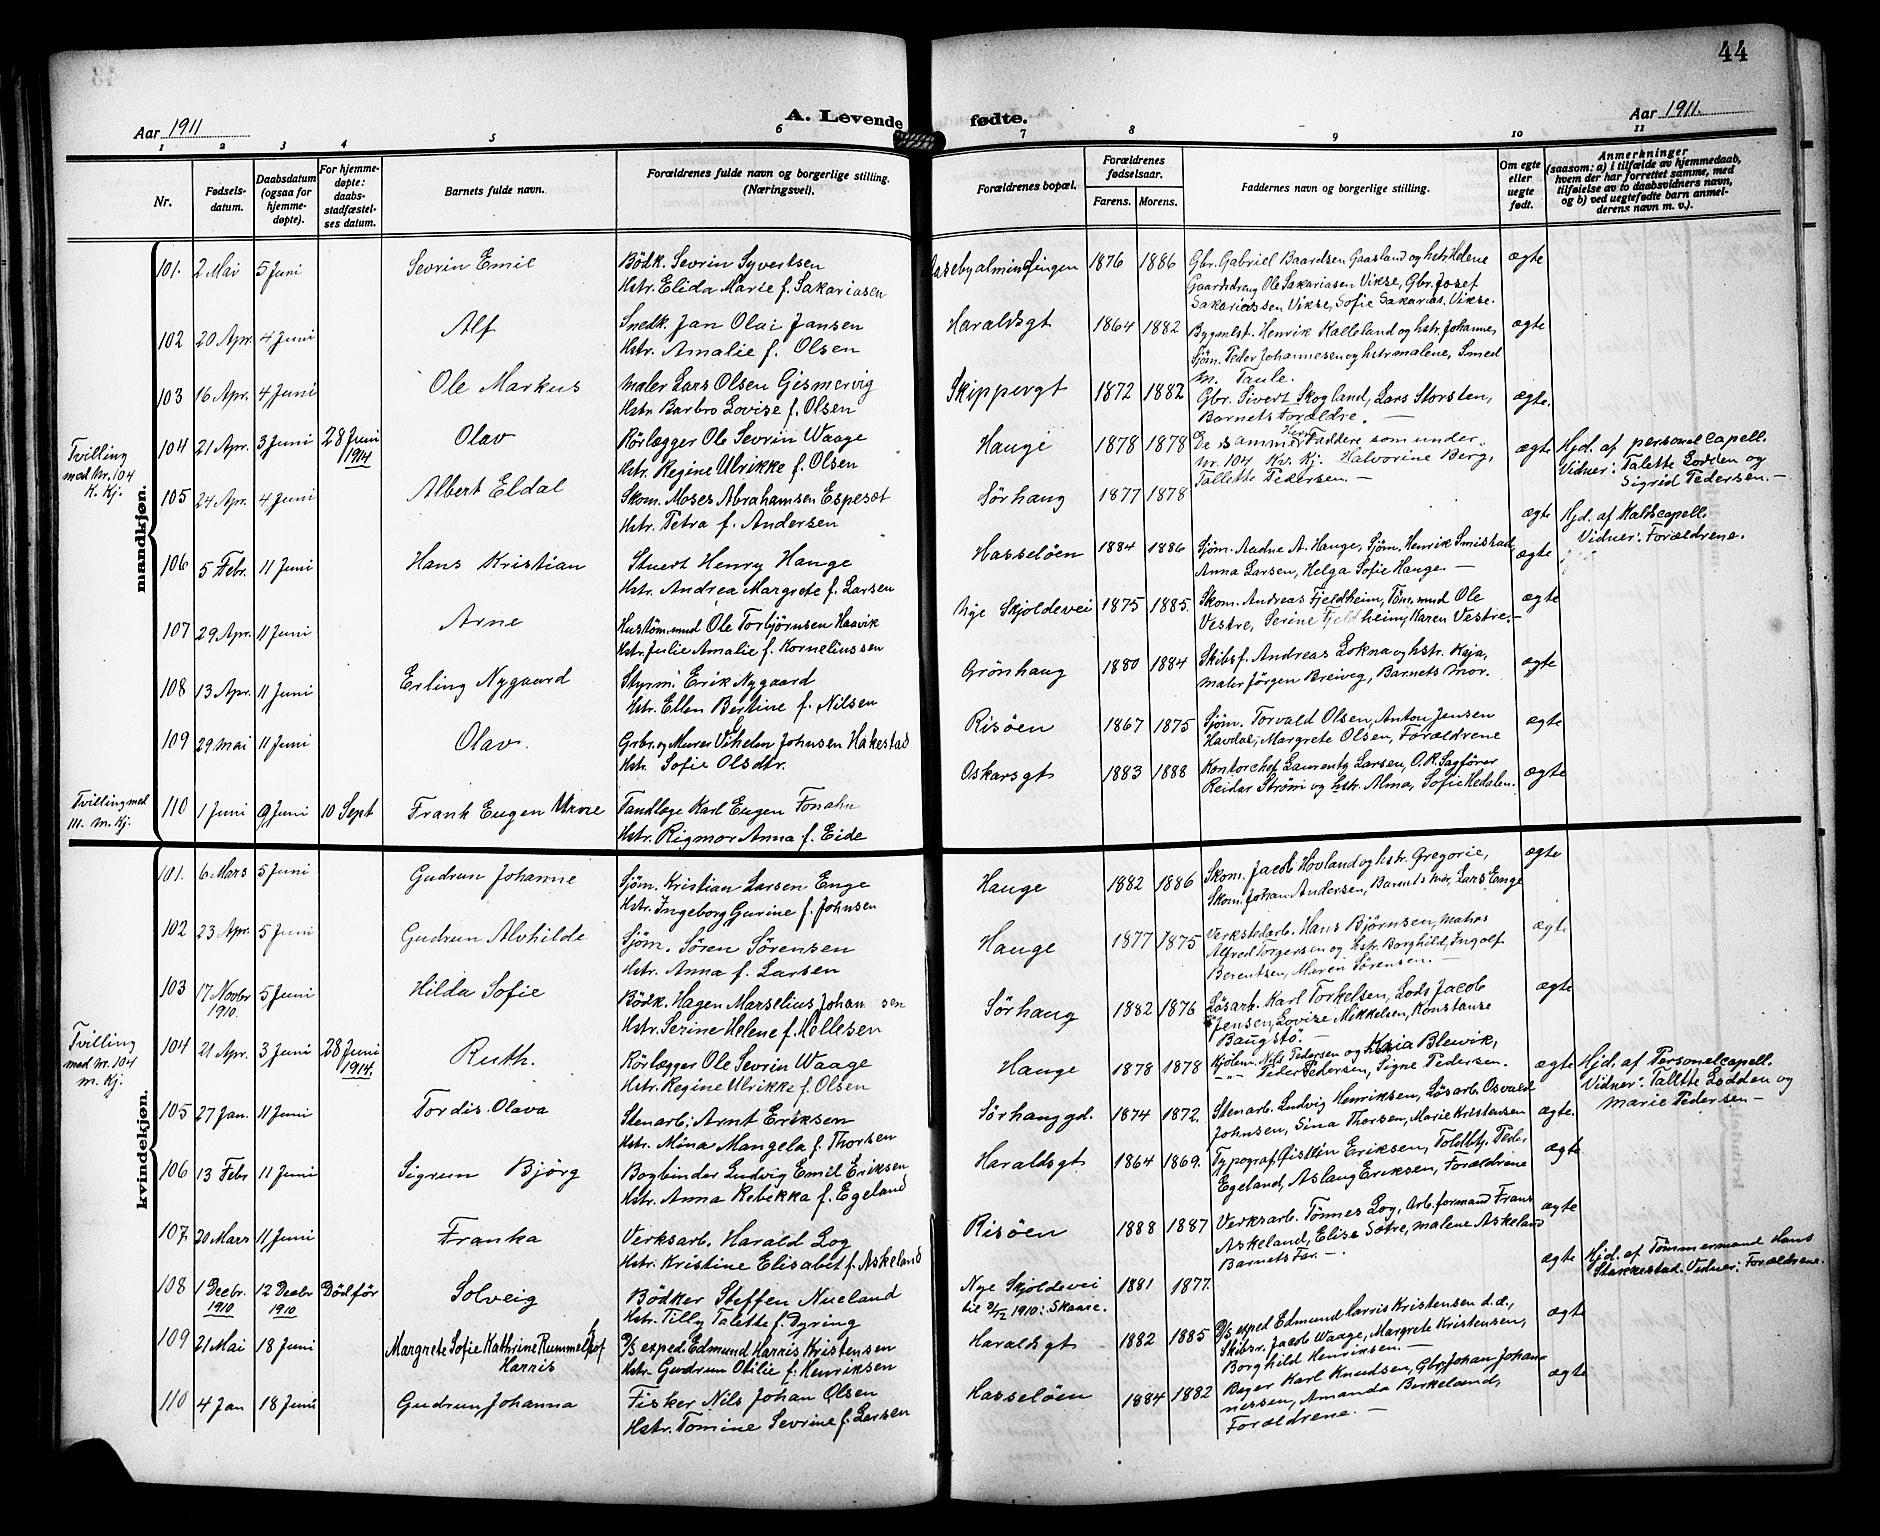 44
Aar 1911
A. Levende fødte.
Aar 1911.
1 2 3 4 5 6 7 8 9 10 11
Nr.
Fødsels-
datum.
Daabsdatum
(ogsaa for
hjemme-
døpte).
For hjemme-
døpte:
daabs-
stadfæstel-
ses datum.
Barnets fulde navn.
Forældrenes fulde navn og borgerlige stilling.
(Næringsvei).
Forældrenes bopæl.
Forældrenes
fødselsaar.
Farens.
Morens.
Faddernes navn og borgerlige stilling.
Om egte
eller
uegte
født.
Anmerkninger
(saasom: a) i tilfælde av hjemmedaab,
hvem der har forrettet samme, med
tilføielse av to daabsvidners navn,
og b) ved uegtefødte barn anmel-
derens navn m. v.).
mandkjøn.
101. 2 Mai 5 Juni Sevrin Emil
Bödk. Sevrin Syvertsen
Hstr. Elida Marie f. Sakariasen
1876 1886
Gbr. Gabriel Baardsen Gaasland og hstr. Helene
Gaardsdreng Ole Sakariasen Vikse, Gbr. Josef
Sakariassen Vikse, Sofie Sakarias. Vikse.
ægte
102 20 Apr. 4 Juni Alf
Snedk. Jan Olai Jansen
Hstr. Amalie f. Olsen
Haraldsgt 1864 1882
Bygmest. Henrik Kalleland og hstr. Johanne,
Sjöm. Peder Johannessen og hstr Malene, Smed
M. Taule.
ægte
103 16 Apr. 4 Juni Ole Markus
Maler Lars Olsen Gismervig
Hstr Barbro Lovise f. Olsen
Skippergt 1872 1882
Gbr. Sivert Skogland, Lars Storsten,
Barnets Forældre. —
ægte.
Tvilling
med Nr. 104
K. Kj.
104 21 Apr. 3 Juni 28 Juni
1914
Olav
Rörlægger Ole Sevrin Waage
Hstr. Regine Ulrikke f. Olsen
Hauge 1878 1878
De samme Faddere som under
Nr. 104 Kv. Kj. Halvorine Berg,
Tallette Pedersen. —
ægte
Hjd. af personelcapell.
Vidner: Talette Lodden og
Sigrid Pedersen. —
105 24 Apr. 4 Juni Albert Eldal
Skom. Moses Abrahamsen Espeset
Hstr. Petra f. Andersen
Sörhaug 1877 1878
ægte
Hjd. af Kaldscapell.
Vidner: Forældrene.
106 5 Febr. 11 Juni Hans Kristian
Stuert Henry Hauge
Hstr. Andrea Margrete f. Larsen
Hasselöen 1884 1886
Sjöm. Aadne A. Hauge, Sjöm. Henrik Smistad,
Anna Larsen, Helga Sofie Hauge —
ægte
107 29 Apr. 11 Juni Arne
Hustöm.mnd Ole Torbjörnsen Haavik
Hstr. Julie Amalie f. Korneliussen
Nye Skjoldevei 1875 1885.
Skom. Andreas Fjeldheim, Töm.mnd Ole
Vestre, Serine Fjeldheim, Karen Vestre. —
ægte
108 13 Apr. 11 Juni Erling Nygaard
Styrm. Erik Nygaard
Hstr. Ellen Bertine f. Nilsen
Grönhaug 1880 1884
Skibsf. Andreas Lokna og hstr. Kaja,
Maler Jörgen Breivig, Barnets Mor.
ægte
109 29 Mai 11 Juni Olav.
Grbr. og Murer Vilhelm Johnsen Hakestad
Hstr. Sofie Olsdtr.
Risöen 1867 1875
Sjöm. Torvald Olsen, Anton Jensen
Havdal, Margrete Olsen, Forældrene
ægte
Tvilling med
111. m. Kj.
110 1 Juni 9 Juni 10 Sept Frank Eugen
Tandlæge Karl Eugen Fonahn
Hstr. Rigmor Anna f. Eide
Oskarsgt 1883 1888
Kontorchef Laurentz Larsen, O.R. Sagförer
Reidar Ström og hstr. Alma, Sofie Hedalen.
ægte
kvindekjøn.
101. 6 Mars 5 Juni Gudrun Johanne
Sjöm. Kristian Larsen Enge
Hstr. Ingeborg Gurine f. Johnsen
Hauge 1882 1886
Skom. Jacob Hovland og hstr. Gregorie,
Skom. Johan Andersen, Barnets Mor, Lars Enge
ægte
102 23 Apr. 5 Juni Gudrun Alvhilde
Sjöm. Sören Sörensen
Hstr. Anna f. Larsen
Hauge 1877 1875
Verkstedarb. Hans Björnsen, Matros
Alfred Torgersen og hstr. Borghild, Ingolf
Berentsen, Maren Sörensen. —
ægte
103 17 Novbr
1910. 5 Juni Hilda Sofie
Bödk. Hagen Marselius Johannsen
Hstr. Serine Helene f. Hellesen
Sörhaug 1882 1876
Lösarb. Karl Torkelsen, Lods Jacob
Jensen, Lovise Mikkelsen, Konstanse
Baugstö. —
ægte
Tvilling
med nr. 104
m. Kj.
104 21 Apr. 3 Juni 28 Juni
1914.
Ruth.
Rörlægger Ole Sevrin Waage
Hstr. Regine Ulrikke f. Olsen
Hauge 1878 1878
Kjölem. Nils Pedersen og Maria Bleivik,
—"— Peder Pedersen, Signe Pedersen.
ægte
Hjd. af Personelcapell.
Vidner: Tallette Lodden og
Marie Pedersen —
105 27 Jan. 11 Juni Tordis Olava
Stenarb. Arnt Eriksen
Hstr. Mina Mangela f. Thorsen
Sörhauggd. 1874 1872.
Stenarb. Ludvig Henriksen, Lösarb. Osvald
Johnsen, Sina Thorsen, Marie Kristensen
ægte.
106 13 Febr 11 Juni Sigrun Björg
Bogbinder Ludvig Emil Eriksen
Hstr. Anna Rebekka f. Egeland
Haraldsgt 1864 1869.
Typograf Eriksen, Toldbtj. Peder
Egeland, Aslaug Eriksen, Forældrene
ægte
107. 20 Mars 11 Juni Franka
Verksarb. Harald Log
Hstr. Kristine Elisabet f. Askeland
Risöen 1888 1887
Verksarb. Tönnes Log, Arb.formand Frans
Askeland, Elise Sötre, Malene Askeland
Barnets Far. —
ægte
108 1 Decbr.
1910 12 Decbr
1910 Dödför Solveig
Bödker Steffen Nueland
Hstr. Tilly Talette f. Dyring
Nye Skjoldevei
til 9/12 1910: Skaare.
1881 1877.
ægte
Hjd. af Tömmermand Hans
Stakkestad. Vidner: Forældrene.
109 21 Mai 18 Juni Margrete Sofie Kathrine Rummelhof
Harris
D/S exped. Edmund Harris Kristensen
Hstr. Gudrun Otilie f. Henriksen
Haraldsgt 1882 1885
D/S exped Edmund Harris Kristensen d.æ.,
Skibsr. Jacob Waage, Margrete Kristensen,
Borghild Henriksen. —
ægte
110 4 Jan 18 Juni Gudrun Johanna
Fisker Nils Johan Olsen
Hstr. Tomine Sevrine f. Larsen
Hasselöen 1884 1882
Bager Karl Knudsen, Gbr. Johan Johan-
nessen, Amanda Birkeland,
Forældrene. —
ægte